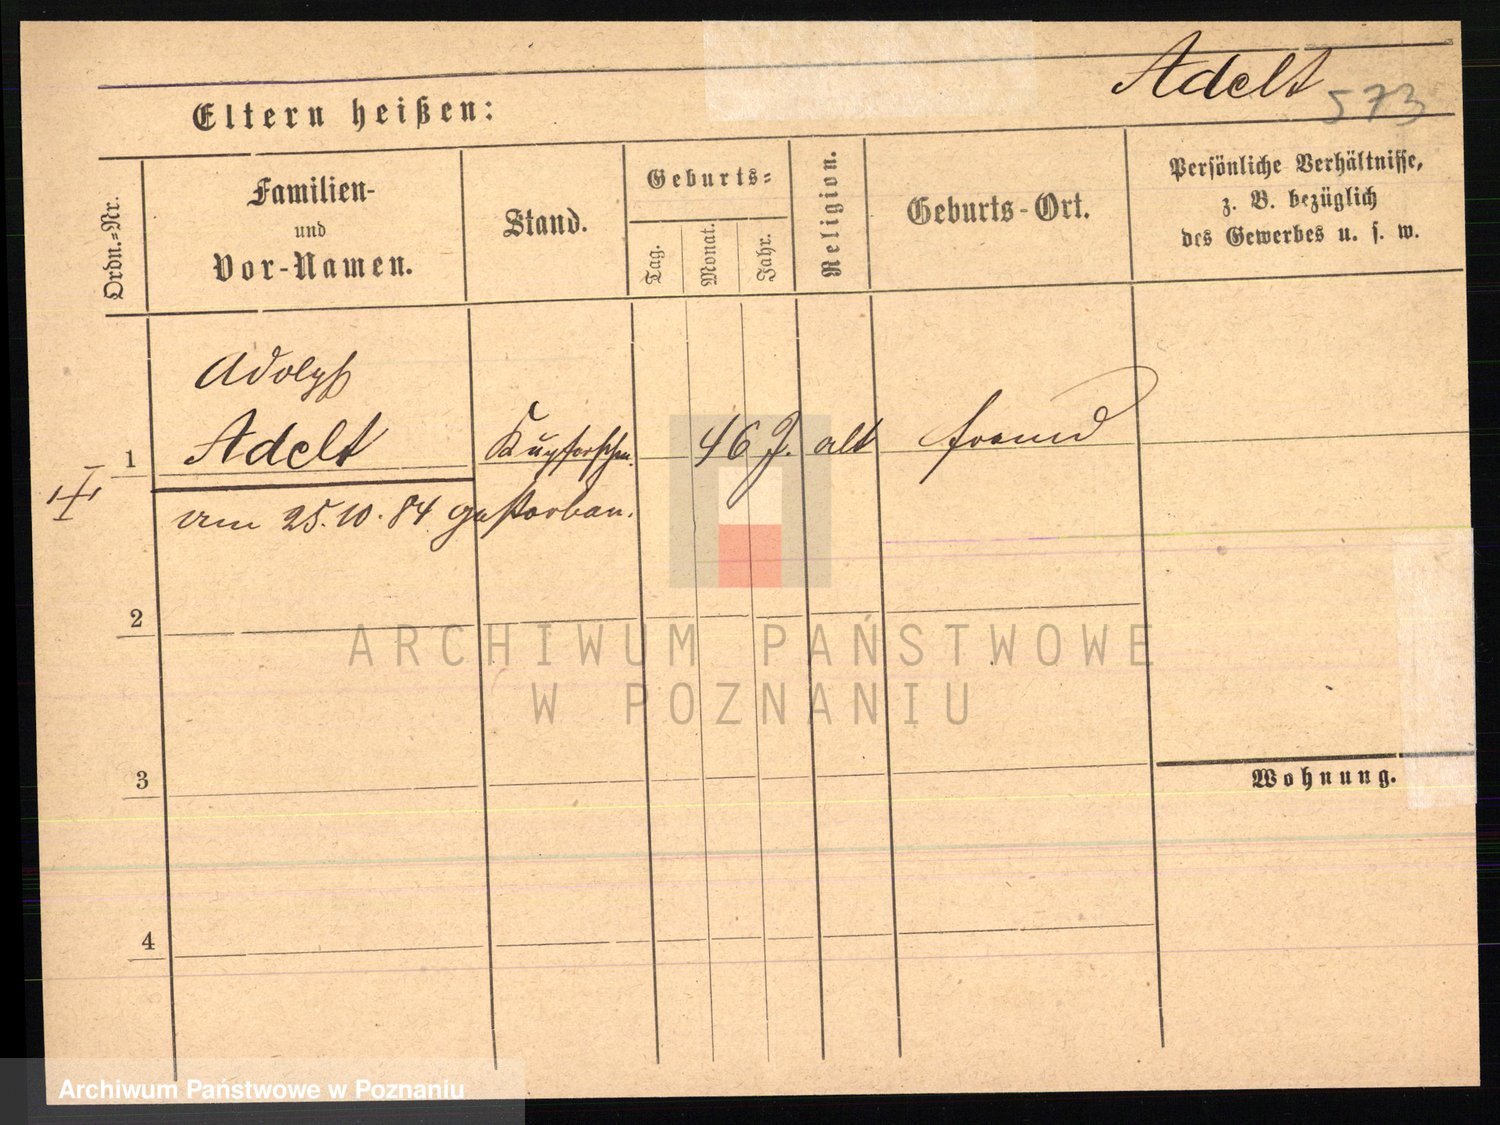 Adelt 573
Eltern heißen:
Ordn.-Nr.
Familien-
und
Vor-Namen.
Stand.
Geburts-
Tag.
Monat.
Jahr.
Religion.
Geburts-Ort.
Persönliche Verhältnisse,
z. B. bezüglich
des Gewerbes u. s. w.
Adolph
1 Adelt 46 J. alt fremd
am 25.10.84 gestorben.
2
ARCHIWUM PAŃSTWOWE
W POZNANIU
3
Wohnung.
4
Archiwum Państwowe w Poznaniu